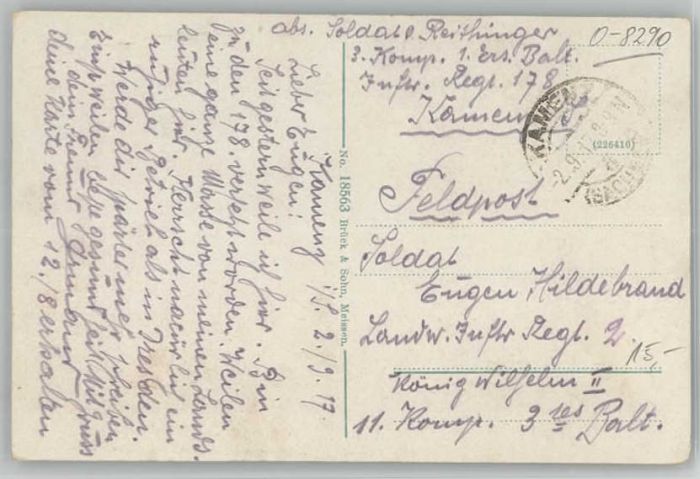 abs. Soldat O. Reithinger
3. Komp. 1. Ers. Batt.
Inftr. Regt. 178
Kamenz
O-8290
KAMENZ
2.9.17 8-9 N
(SACHSEN)
(226410)
Feldpost
Soldat
Eugen Hildebrand
Landw. Inftr Regt. 2
15,-
König Wilhelm II
11. Komp. 3tes Batt.
No. 18563 Brück & Sohn, Meissen.
Kamenz i/S. 2./9. 17
Lieber Eugen!
Seit gestern weile ich hier. Bin
zu den 178 versetzt worden. Weilen
eine ganze Masse von meinen Lands-
leuten hier. Herrscht natürlich ein
ruhiger Betrieb als in Dresden.
Werde dir später mehr schreiben
Einstweilen beste gesundheit Mit Gruss
dein Freund
deine Karte vom 12./8 erhalten